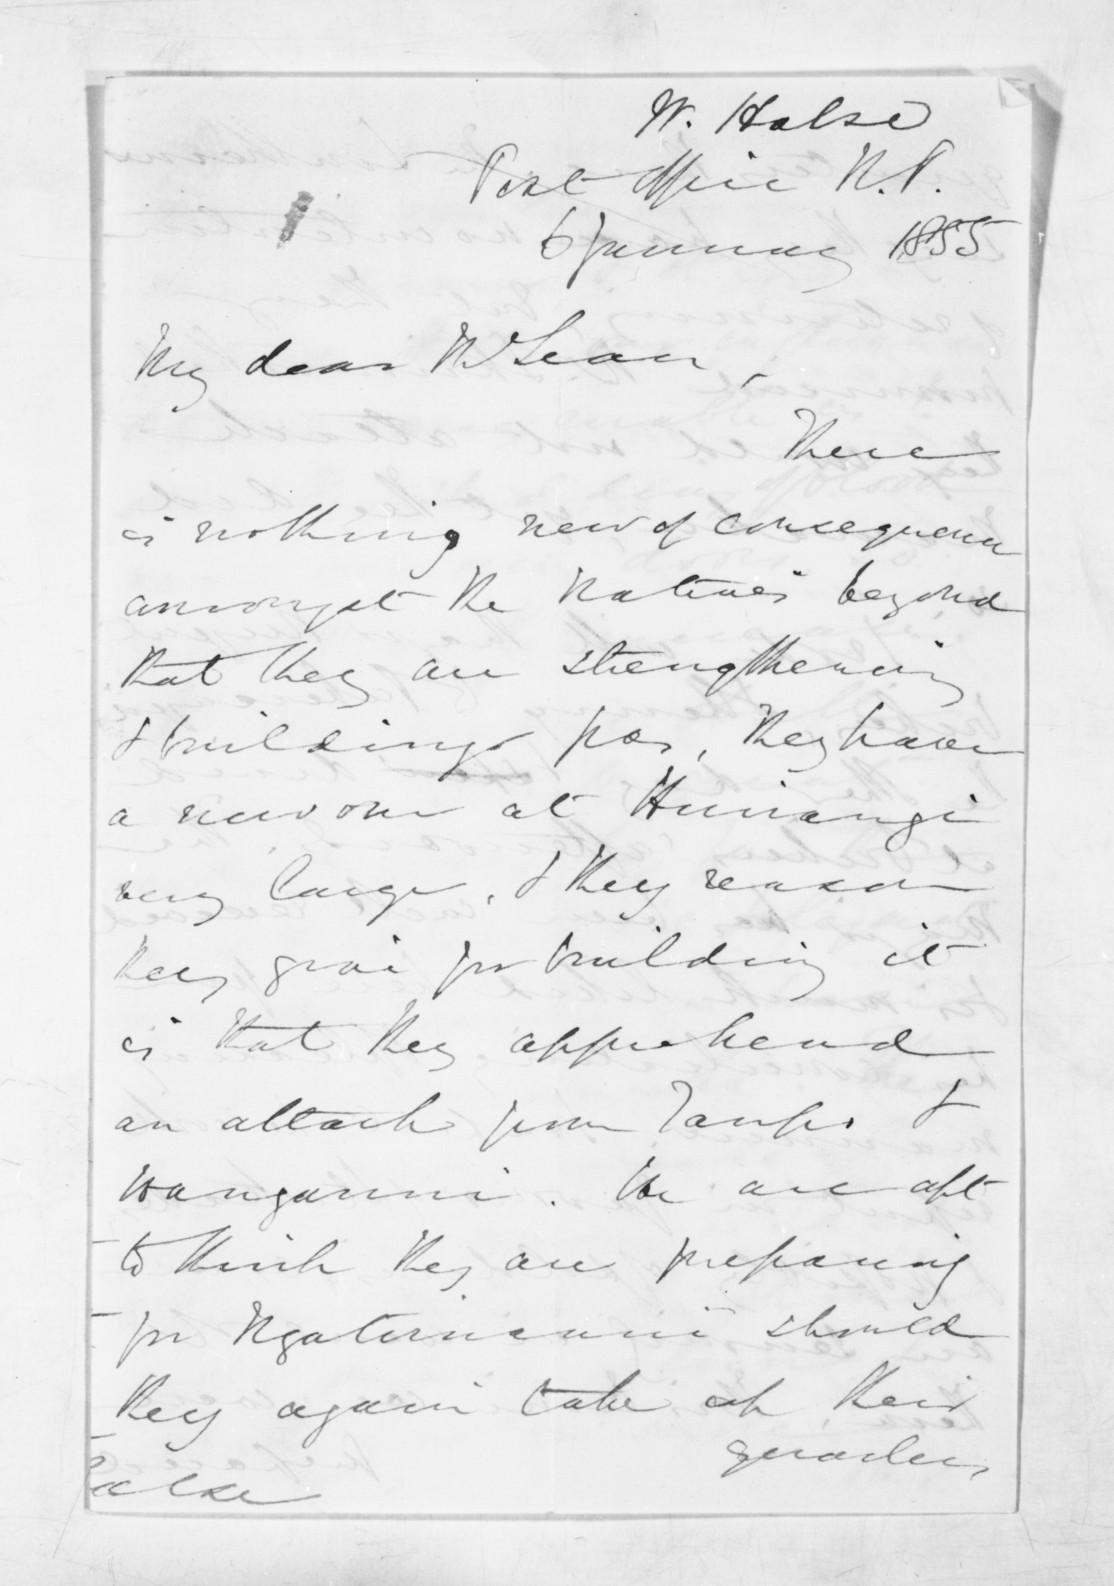 W. Halse
Post Office N.P.
6 January 1855
My dear McLean,
There
is nothing new of consequence
amongst the Natives beyond
that they are strengthening
& building pas, they have
a new one at Huirangi
very large, & they reason
they give for building it
is that they apprehend
an attack from Taupo &
Wanganui. We are apt
to think they are preparing
for Ngatiruanui should
they again take up their
quarters,
Halse